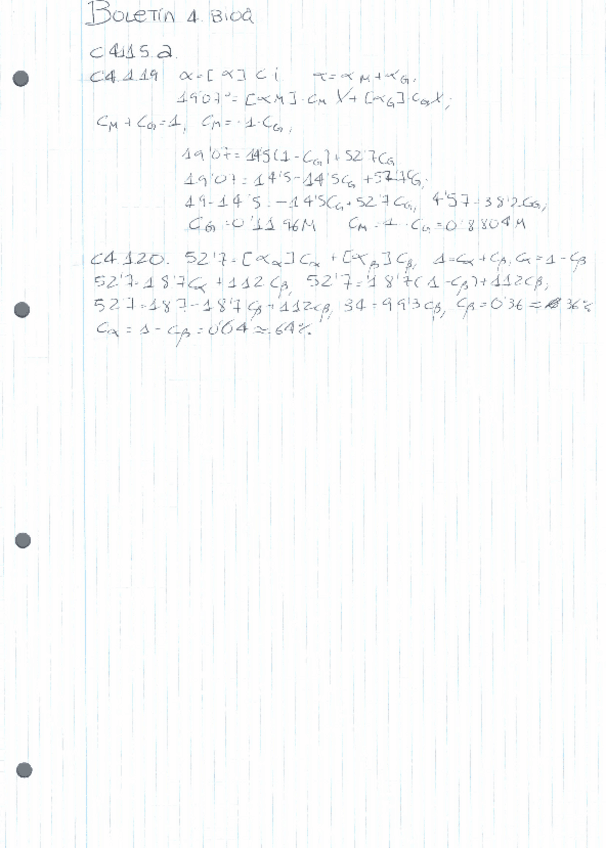 BOLETÍN 4. BIOQ
C4.115 a
C4.119 α=[α] C i α=αM+αG.
19'07°=[αM]·CM X+[αG]·CG X;
CM+CG=1, CM=1-CG,
19'07=14'5(1-CG)+52'7CG
19'07=14'5-14'5CG+52'7CG;
19-14'5=-14'5CG+52'7CG, 4'57=38'2CG;
CG=0'1196M CM=1-CG=0'8804M
C4.120. 52'7=[αα]Cα+[αβ]Cβ, 1=Cα+Cβ, Cα=1-Cβ
52'7=18'7Cα+112Cβ, 52'7=18'7(1-Cβ)+112Cβ;
52'7=18'7-18'7Cβ+112Cβ, 34=99'3Cβ, Cβ=0'36≈36%
Cα=1-Cβ=0'64≈64%.